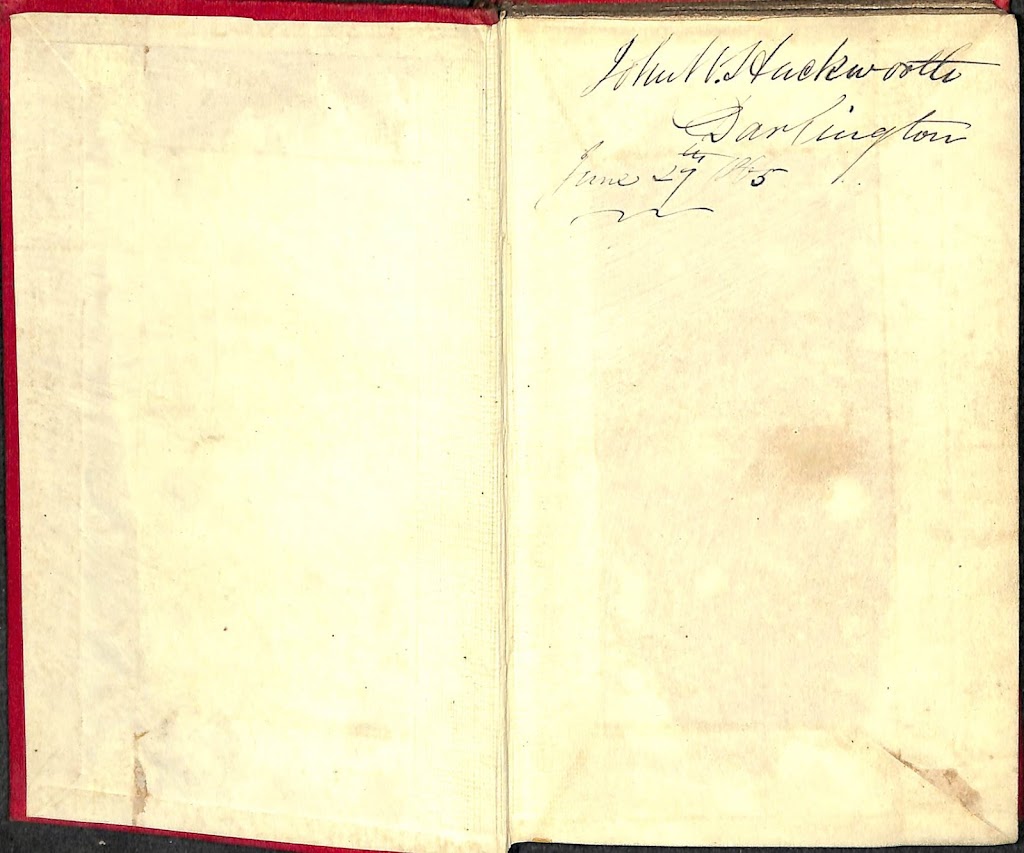 John W. Hackworth
Darlington
June 27th 1865